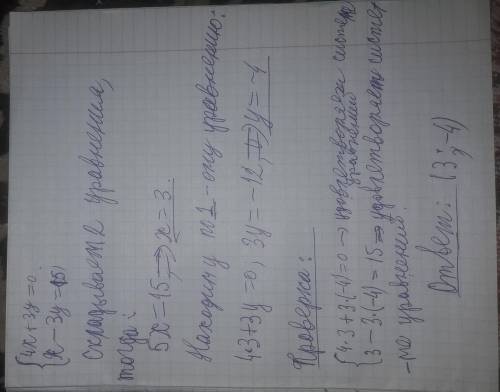 {4x+3y=0.
{x-3y=15;
складывайте уравнения,
тогда:
5x=15,=>x=3.
Находим y по 1-ому уравнению:
4·3+3y=0, 3y=-12,=>y=-4
Проверка:
{4·3+3·(-4)=0→удовлетворяет системе
уравнений
{3-3·(-4)=15→удовлетворяет систе-
-ма уравнений.
Ответ: (3;-4)